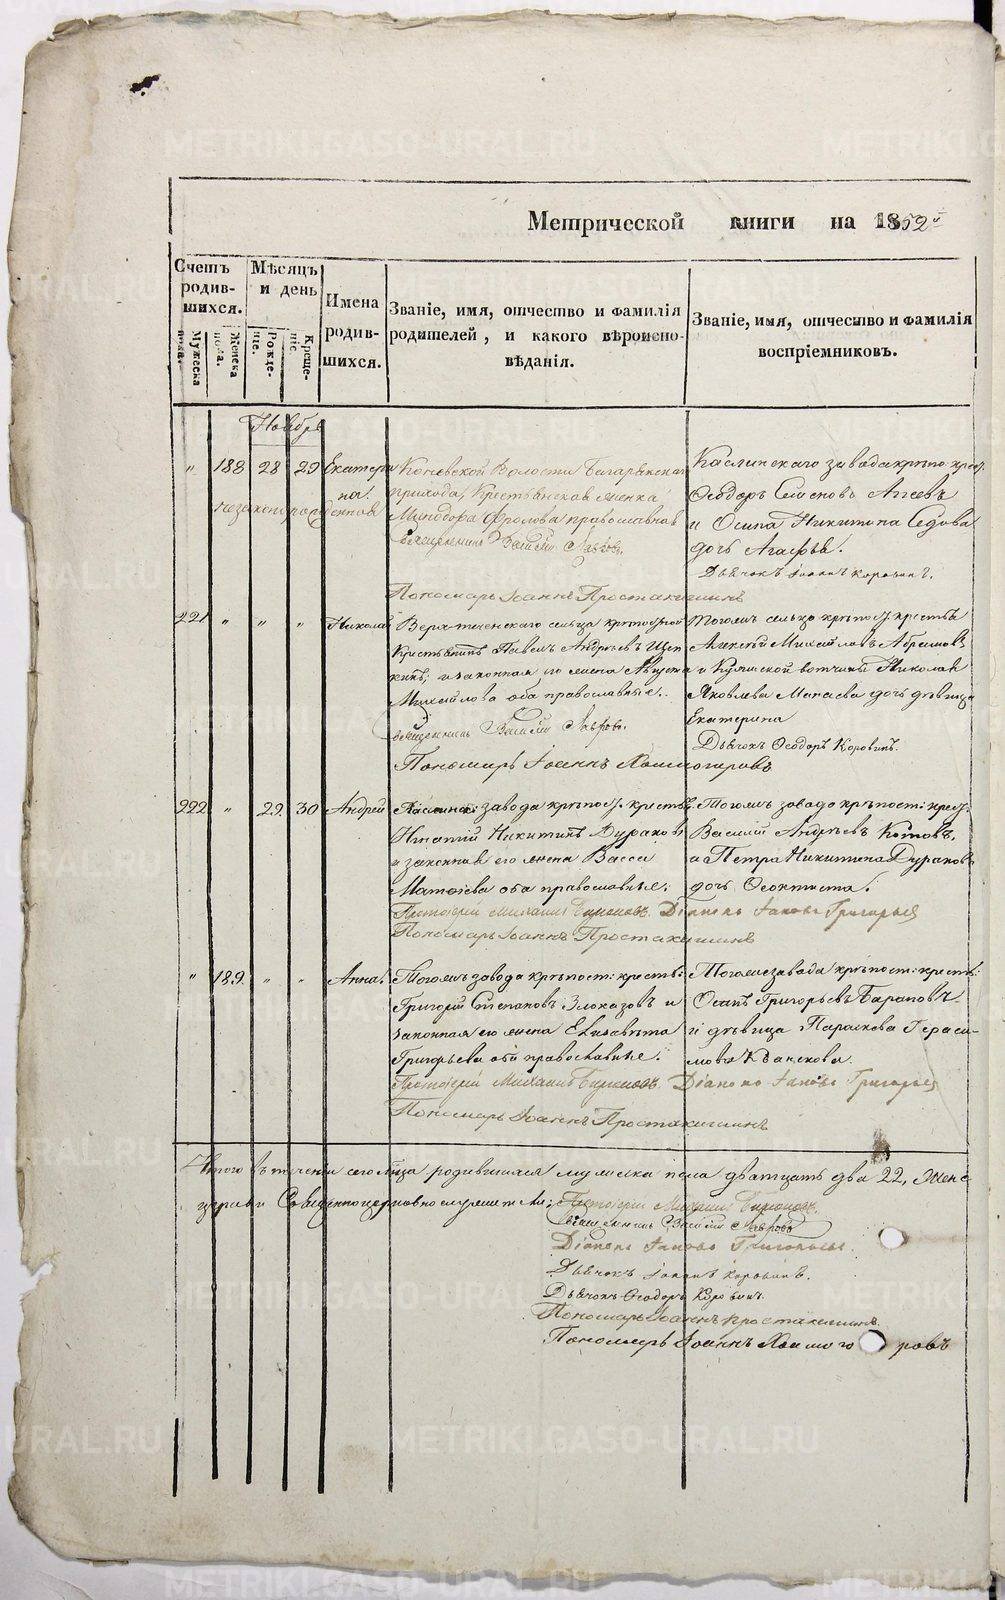 METRIKI.GASO-URAL.RU
Метрической книги на 1852й
Счетъ родив-шихся.
Мужеска пола.
Женска пола.
Мѣсяцъ и день
Рожде-ніе.
Креще-ніе
Имена родив-шихся.
Званіе, имя, отчество и фамилія родителей, и какого вѣроисно-вѣданія.
Званіе, имя, отчество и фамилія воспріемниковъ.
Ноябрь
" 188 28 29 Екатери
на.
незаконнорожденная
Коневской Волости Багарякскаго
прихода, Крестьянская женка
Минодора Фролова православная
Священникъ Василій Лавровъ.
Пономарь Іоаннъ Простакишинъ
Каслинскаго завода крѣпо: крес:
Ѳеодоръ Семеновъ Агеевъ
и Осипа Никитина Седова
дочь Агафья.
Дьячокъ Іоаннъ Коровинъ.
221 " " " Николай
Верх-теченскаго сельца крѣпостной
Крестьянинъ Павелъ Андреевъ Щеп
кинъ, и законная его жена
Михайлова оба православные.
Священникъ Василій Лавровъ.
Пономарь Іоаннъ Холмогоровъ
Тогожъ сельца крѣпос: крестья
Алексѣй Михайловъ Абрамовъ
и вотчины Николая
Яковлева дочь дѣвица
Екатерина
Дьячокъ Ѳеодоръ Коровинъ.
222 " 29 30 Андрей
Каслинск: завода крѣпос: крестья:
Игнатій Никитинъ Дураковъ
и законная его жена Васса
Матвіева оба православные.
Протоіерей Михаилъ Бирюковъ. Діаконъ Іаковъ Григорьевъ
Пономарь Іоаннъ Простакишинъ
Тогожъ завода крѣпост: крес:
Василій Андреевъ Котовъ,
и Петра Никитина Дуракова
дочь Ѳеоктиста.
" 189. " " Анна.
Тогожъ завода крѣпост: кресть:
Григорій Степановъ Злоказовъ и
законная его жена Елизавета
Григорьева оба православные.
Протоіерей Михаилъ Бирюковъ Діаконъ Іаковъ Григорьевъ
Пономарь Іоаннъ Простакишинъ
Тогожъ завода крѣпост: кресть:
Осипъ Григорьевъ Барановъ
и дѣвица Параскова Гераси-
мова
Итого въ теченіи сего м҃ца родившихся мужска пола дватцать два 22, женс
церкви Священноцерковнослужители: Протоіерей Михаилъ Бирюковъ.
Священникъ Василій Лавровъ
Діаконъ Іаковъ Григорьевъ.
Дьячокъ Іоаннъ Коровинъ.
Дьячокъ Ѳеодоръ Коровинъ.
Пономарь Іоаннъ Простакишинъ.
Пономарь Іоаннъ Холмогоровъ